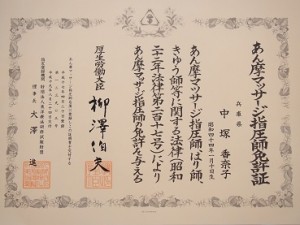 あん摩マッサージ指圧師免許証
兵庫県
中塚香奈子
昭和四十四年一月十日生
あん摩マッサージ指圧師、はり師、
きゆう師等に関する法律(昭和
二十二年法律第二百十七号)により
あん摩マッサージ指圧師の免許を与える
厚生労働大臣
柳澤伯夫
大澤進